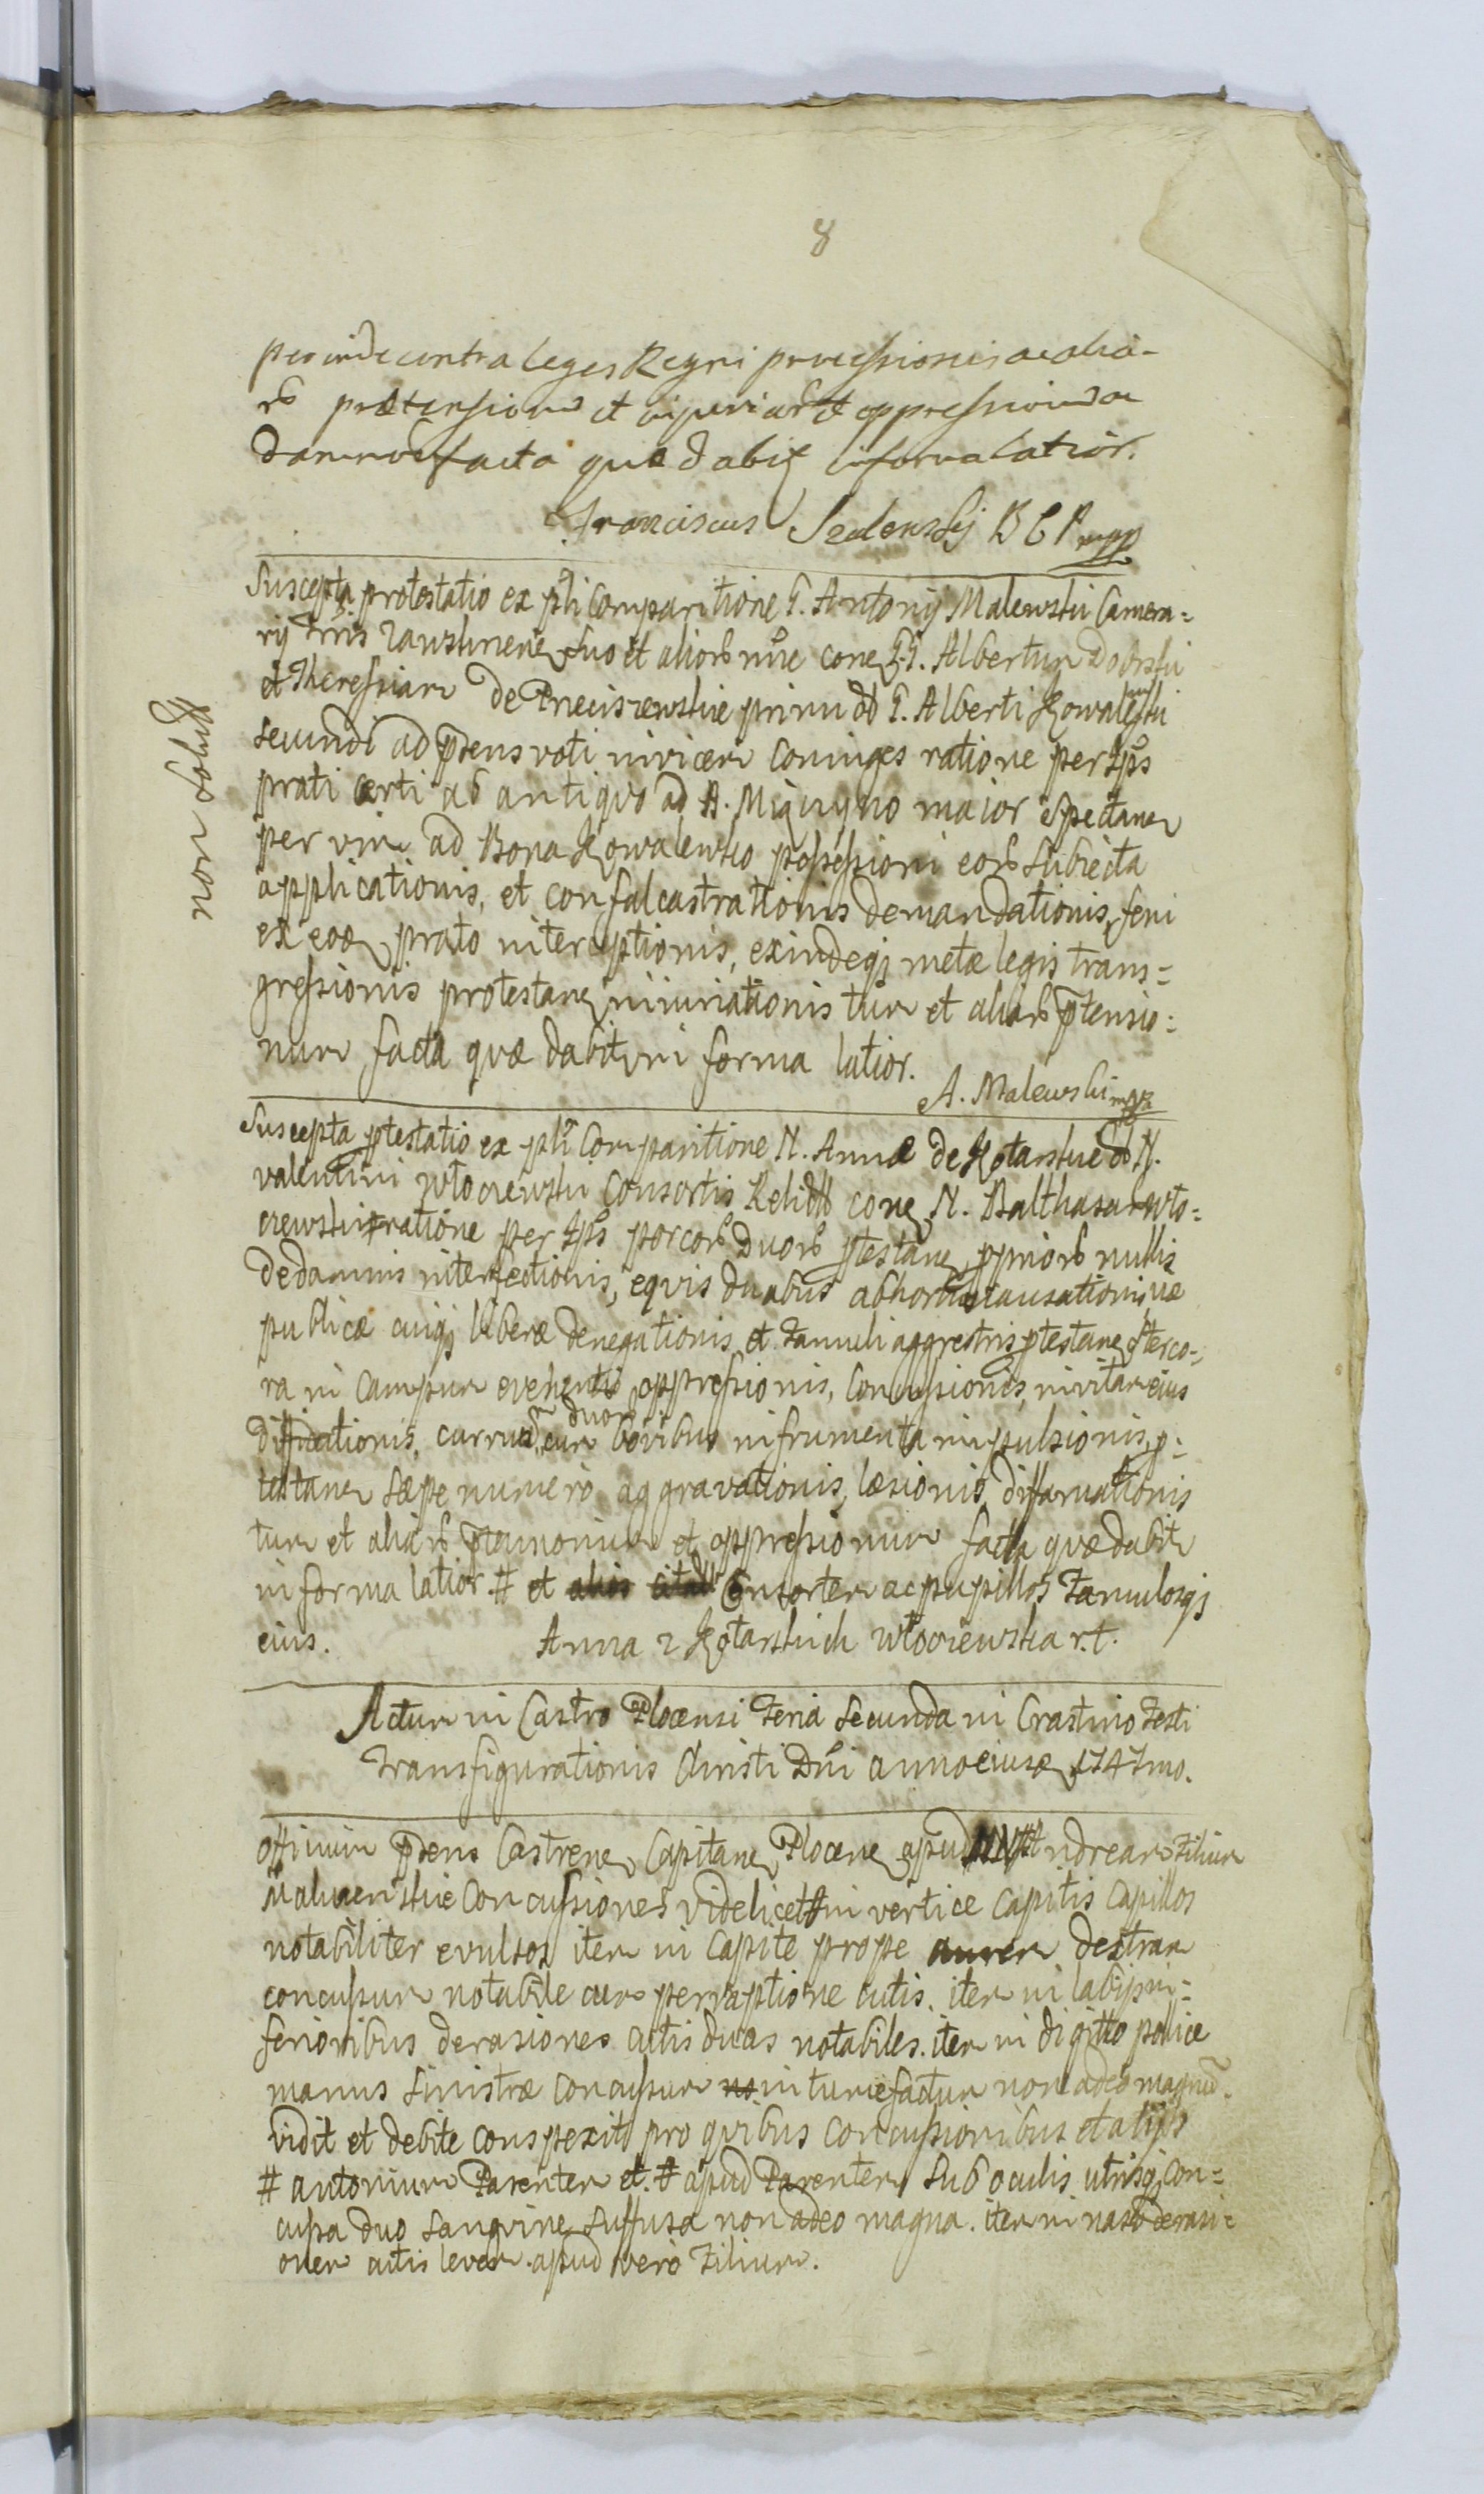 8
per inde contra leges Regni processionis ac alia-
rũ prætensionũ et injuriarũ et oppressionũ ac
damnorũ facta quæ dabitʒ in forma latiorː
Franciscus BCP mpp
non solutᷤ
Suscepta protestatio ex psli Comparitione G. Antonij Malewski Camera=
rij Trris suo et aliorũ nõie cone GG. Albertum Dobrski
et Theressiam de primi G. Alberti Kowalewski
secundi ad psens voti invicem coniuges ratione per Ipš
prati certi ab antiquo ad B. maior spectanᷤ
per vim ad Bona Kowalewko possessioni eorũ subiecta
applicationis, et confalcastrationis demandationis, feni
ex eoꝫ prato interceptionis, exindeqʒ metæ legis trans=
gressionis protestanᷤ iniuriationis tum et aliarũ ptensio=
num facta quæ dabitr in forma latior.
A. Malewski mpp
Suscepta ptestatio ex psli Comparitione N. Annæ de Kotarskie N.
Valentini Włoczewski Consortis Relictæ cone N. Balthasarem Wło=
czewski ratione per Ipš porcorũ duorũ ptestanᷤ ppriorũ nullis
de damnis interfectionis, equis duabus
publicæ cuiqʒ liberæ denegationis et famuli aggrestris ptestanᷤ sterco-
ra in campum evehentis oppressionis, Concussiones, in vitam eius
diffidationis, currus, cum duorũ bovibus in frumenta impulsionis, p=
testanᷤ sæpe numero aggravationis, læsionis, diffamationis
tum et aliarũ ptensionum et oppressionum facta quæ dabitr
in forma latior # et alios citatᷤ Consortem ac pupillos famulosqʒ
eius.
Anna z Kotarskich Włoczewska r.t.
Actum in Castro Plocensi Feria Secunda in Crastino Festi
Transfigurationis Christi Dñi anno eiusꝫ 1747mo.
Officium psens Castrenᷤ Capitanᷤ Plocenᷤ apud NN # Andream Filium
Concussiones videlicet # in vertice capitis capillos
notabiliter evulsos item in capite prope aurem dextram
concussum notabile cum perraptione cutis. item in labijs in=
ferioribus derasiones cutis duas notabiles. item in digitto police
manus sinistræ concussum no intumefactum non adeo magnũ.
vidit et debite conspexit pro quibus concussionibus et alijs
# antonium Parentem et. # apud Parentem sub oculis utrisqʒ con=
cussa duo sangvine suffusa non adeo magna. item in naso derasi=
onem cutis levem. apud vero Filium.